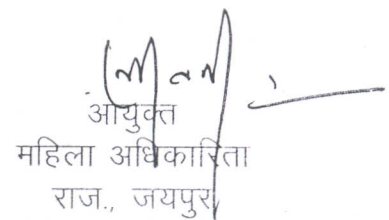 आयुक्त
महिला अधिकारिता
राज., जयपुर